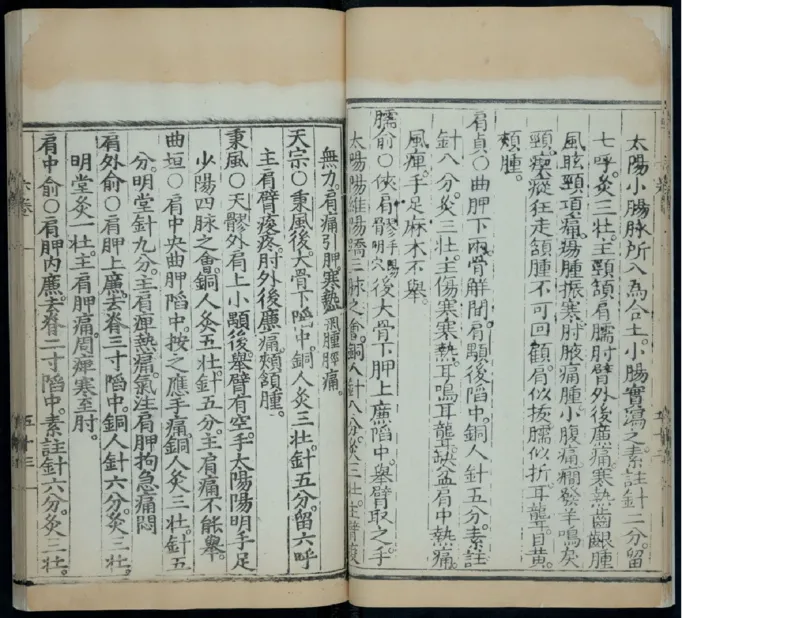 太陽小腸脉所入為合土。小腸實瀉之。素註針二分。留
七呼。灸三壯。主頸頷肩臑肘臂外後廉痛。寒熱齒齦腫
風眩頸項痛。瘍腫振寒肘腋痛腫小腹痛癎發羊鳴戾
頸瘈瘲狂走頷腫不可回顧。肩似拔臑似折耳聾目黄。
頰腫。
肩貞〇曲胛下兩骨觧間。肩顒後陷中。銅人針五分。素註
針八分。灸三壯。主傷寒寒熱耳鳴耳聾缺盆肩中熱痛。
風痺。手足麻木不舉。
臑俞〇俠肩髎手陽明穴後大骨下胛上廉陷中。舉臂取之手
太陽陽維陽蹻三脉之會。銅人針八分。灸三壯。主臂痠
無力。肩痛引胛。寒熱氣腫脛痛。
天宗〇秉風後。大骨下陷中。銅人灸三壯。針五分。留六呼
主肩臂痠疼。肘外後廉痛。頰頷腫。
秉風〇天髎外肩上小顒後。舉臂有空手太陽陽明手足
少陽四脉之會。銅人灸五壯。針五分。主肩痛不能舉。
曲垣〇肩中央曲胛陷中。按之應手痛。銅人灸三壯。針五
分。明堂針九分。主肩痺熱痛。氣注肩胛拘急痛悶
肩外俞〇肩胛上廉。去脊三寸陷中。銅人針六分。灸三壯。
明堂灸一壯。主肩胛痛。周痺寒至肘。
肩中俞〇肩胛内廉。去脊二寸陷中。素註針六分。灸三壯。
六卷
五十三